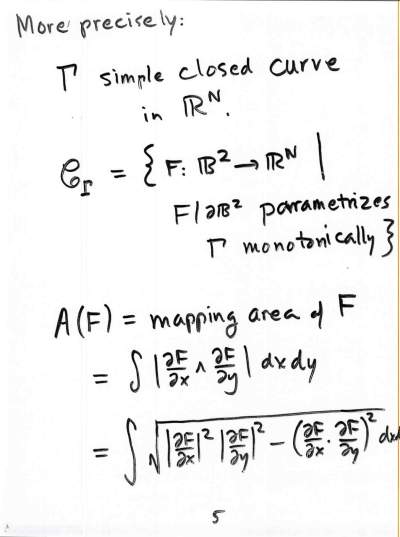 More precisely:
Γ simple closed curve
in ℝᴺ.
𝒞_Γ = { F: 𝔹² → ℝᴺ |
F|∂𝔹² parametrizes
Γ monotonically }
A(F) = mapping area of F
= ∫ |∂F/∂x ∧ ∂F/∂y| dx dy
= ∫ √(|∂F/∂x|² |∂F/∂y|² − (∂F/∂x · ∂F/∂y)²) dx
5